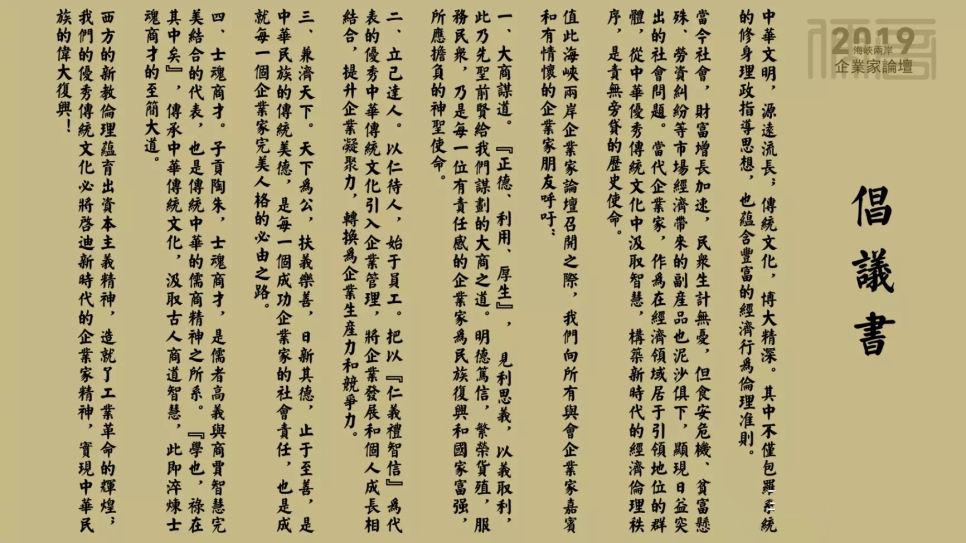 2019
海峽兩岸
企業家論壇
倡議書
中華文明，源遠流長；傳統文化，博大精深。其中不僅包羅系統
的修身理政指導思想，也蘊含豐富的經濟行爲倫理准則。
當今社會，財富增長加速，民衆生計無憂，但食安危機、貧富懸
殊、勞資糾紛等市場經濟帶來的副産品也泥沙俱下，顯現日益突
出的社會問題。當代企業家，作爲在經濟領域居于引領地位的群
體，從中華優秀傳統文化中汲取智慧，構築新時代的經濟倫理秩
序，是責無旁貸的歷史使命。
值此海峽兩岸企業家論壇召開之際，我們向所有與會企業家嘉賓
和有情懷的企業家朋友呼吁：
一、大商謀道。『正德、利用、厚生』，見利思義，以義取利，
此乃先聖前賢給我們謀劃的大商之道。明德篤信，繁榮貨殖，服
務民衆，乃是每一位有責任感的企業家爲民族復興和國家富强，
所應擔負的神聖使命。
二、立己達人。以仁待人，始于員工。把以『仁義禮智信』爲代
表的優秀中華傳統文化引入企業管理，將企業發展和個人成長相
結合，提升企業凝聚力，轉換爲企業生産力和競爭力。
三、兼濟天下。天下爲公，扶義樂善，日新其德，止于至善，是
中華民族的傳統美德，是每一個成功企業家的社會責任，也是成
就每一個企業家完美人格的必由之路。
四、士魂商才。子貢陶朱，士魂商才，是儒者高義與商賈智慧完
美結合的代表，也是傳統中華的儒商精神之所系。『學也，祿在
其中矣』，傳承中華傳統文化，汲取古人商道智慧，此即淬煉士
魂商才的至簡大道。
西方的新教倫理蘊育出資本主義精神，造就了工業革命的輝煌；
我們的優秀傳統文化必將啓迪新時代的企業家精神，實現中華民
族的偉大復興！